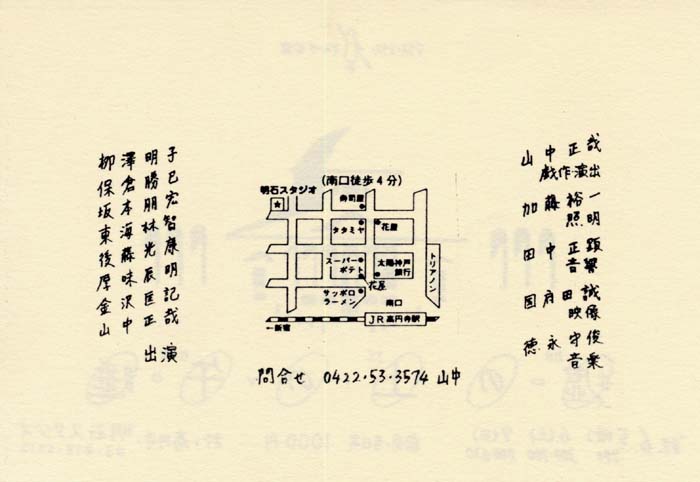 山中正哉
戯作演出
加藤裕一
照明
田中正顕
音響
国府田誠
映像
徳永守俊
音楽
(南口徒歩4分)
明石スタジオ
寿司屋
タタミヤ
花屋
スーパー
ポテト
太陽神戸
銀行
トリアノン
花屋
サッポロ
ラーメン
南口
JR高円寺駅
←新宿
柳澤明子
保倉勝巳
坂本朋宏
東海林智
後藤光康
厚味辰明
金沢匡記
山中正哉
出演
問合せ 0422・53・3574 山中